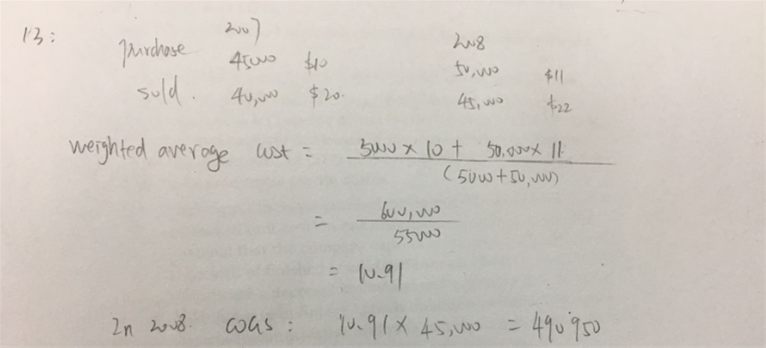 13:
2007 2008
purchase 45000 $10 50,000 $11
sold. 40,000 $20. 45,000 $22
weighted average cost = 5000 × 10 + 50,000 × 11
(5000 + 50,000)
= 600,000
55000
= 10.91
In 2008. COGS : 10.91 × 45,000 = 490950